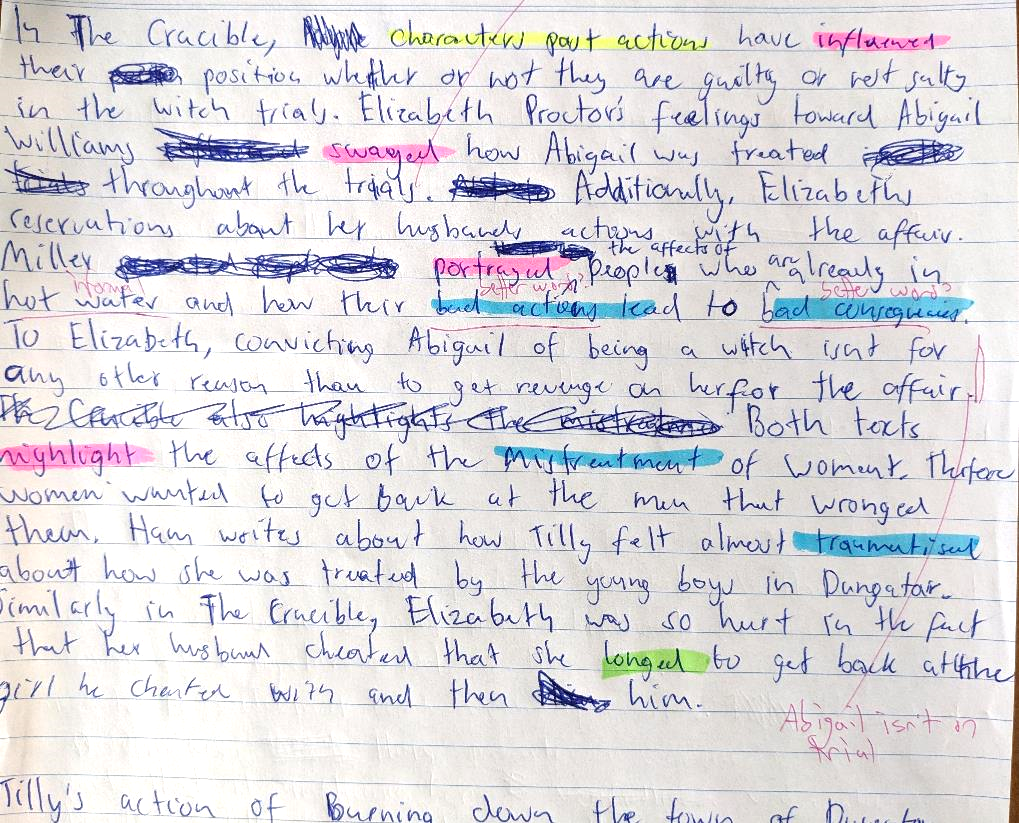 In The Crucible, characters past actions have influenced
their position whether or not they are guilty or not guilty
in the witch trials. Elizabeth Proctor's feelings toward Abigail
Williams swayed how Abigail was treated
throughout the trials. Additionally, Elizabeths
reservations about her husbands actions with the affair.
the affects of
Miller portrayed people who are already in
informal better word? better word?
hot water and how their bad actions lead to bad consequences.
To Elizabeth, convicting Abigail of being a witch isnt for
any other reason than to get revenge on her for the affair.
The Crucible also highlights the mistreatment Both texts
highlight the affects of the mistreatment of woment. Therefore
women wanted to get back at the men that wronged
them. Ham writes about how Tilly felt almost traumatised
about how she was treated by the young boys in Dungatar.
Similarly in The Crucible, Elizabeth was so hurt in the fact
that her husband cheated that she longed to get back at the
girl he cheated with and then him.
Abigail isn't on
trial
Tilly's action of Burning down the town of